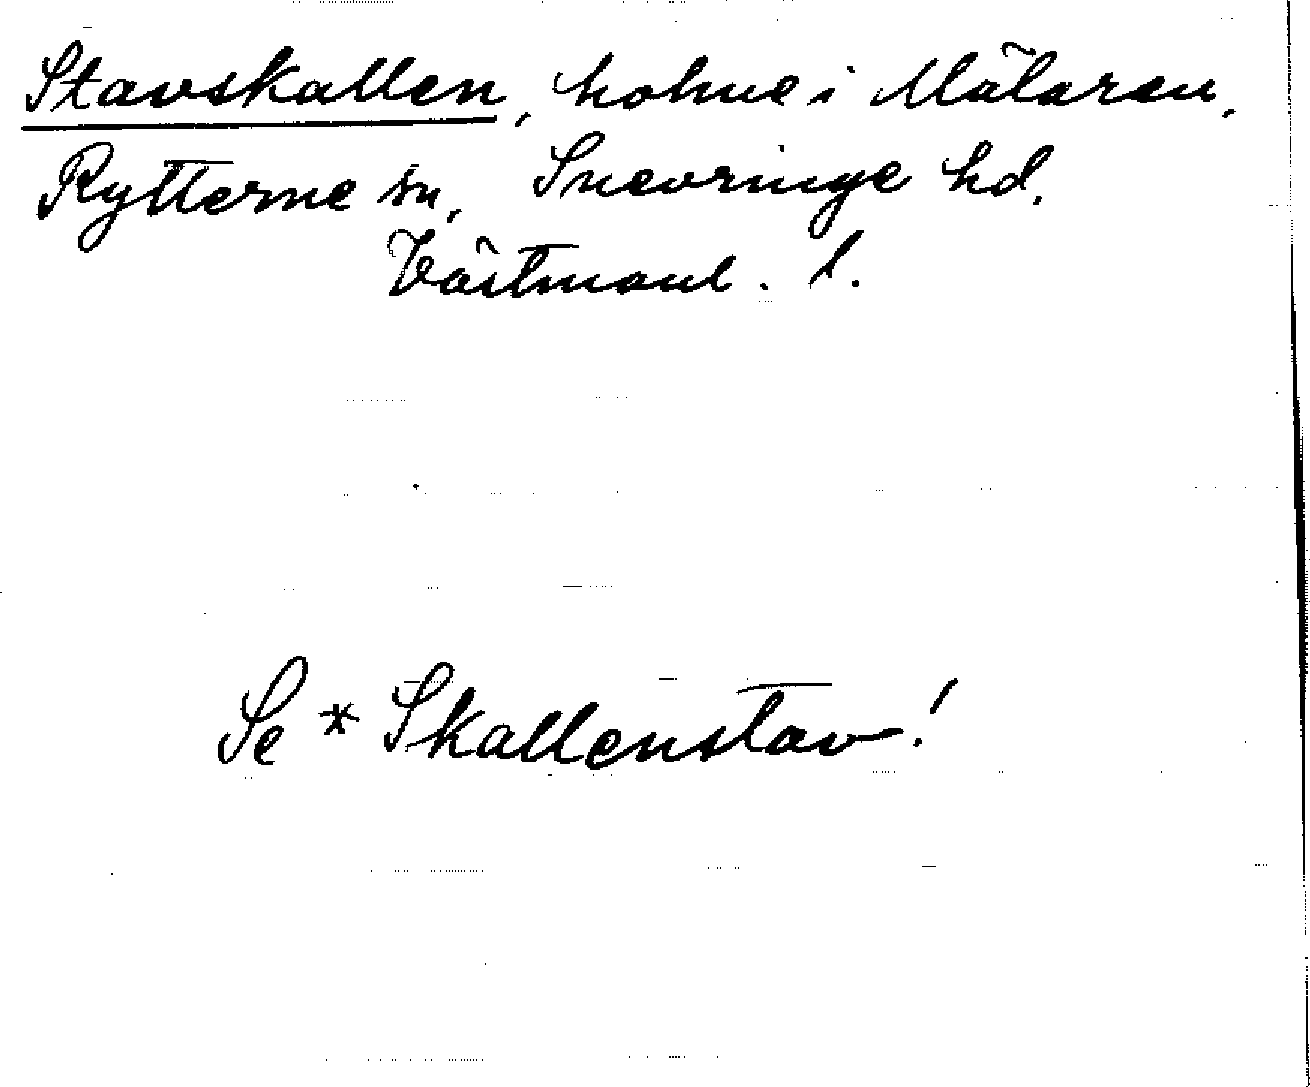 Stavskallen, holme i Mälaren,
Rytterne sn, Snevringe hd.
Västmanl. l.
Se * Skallenstav!